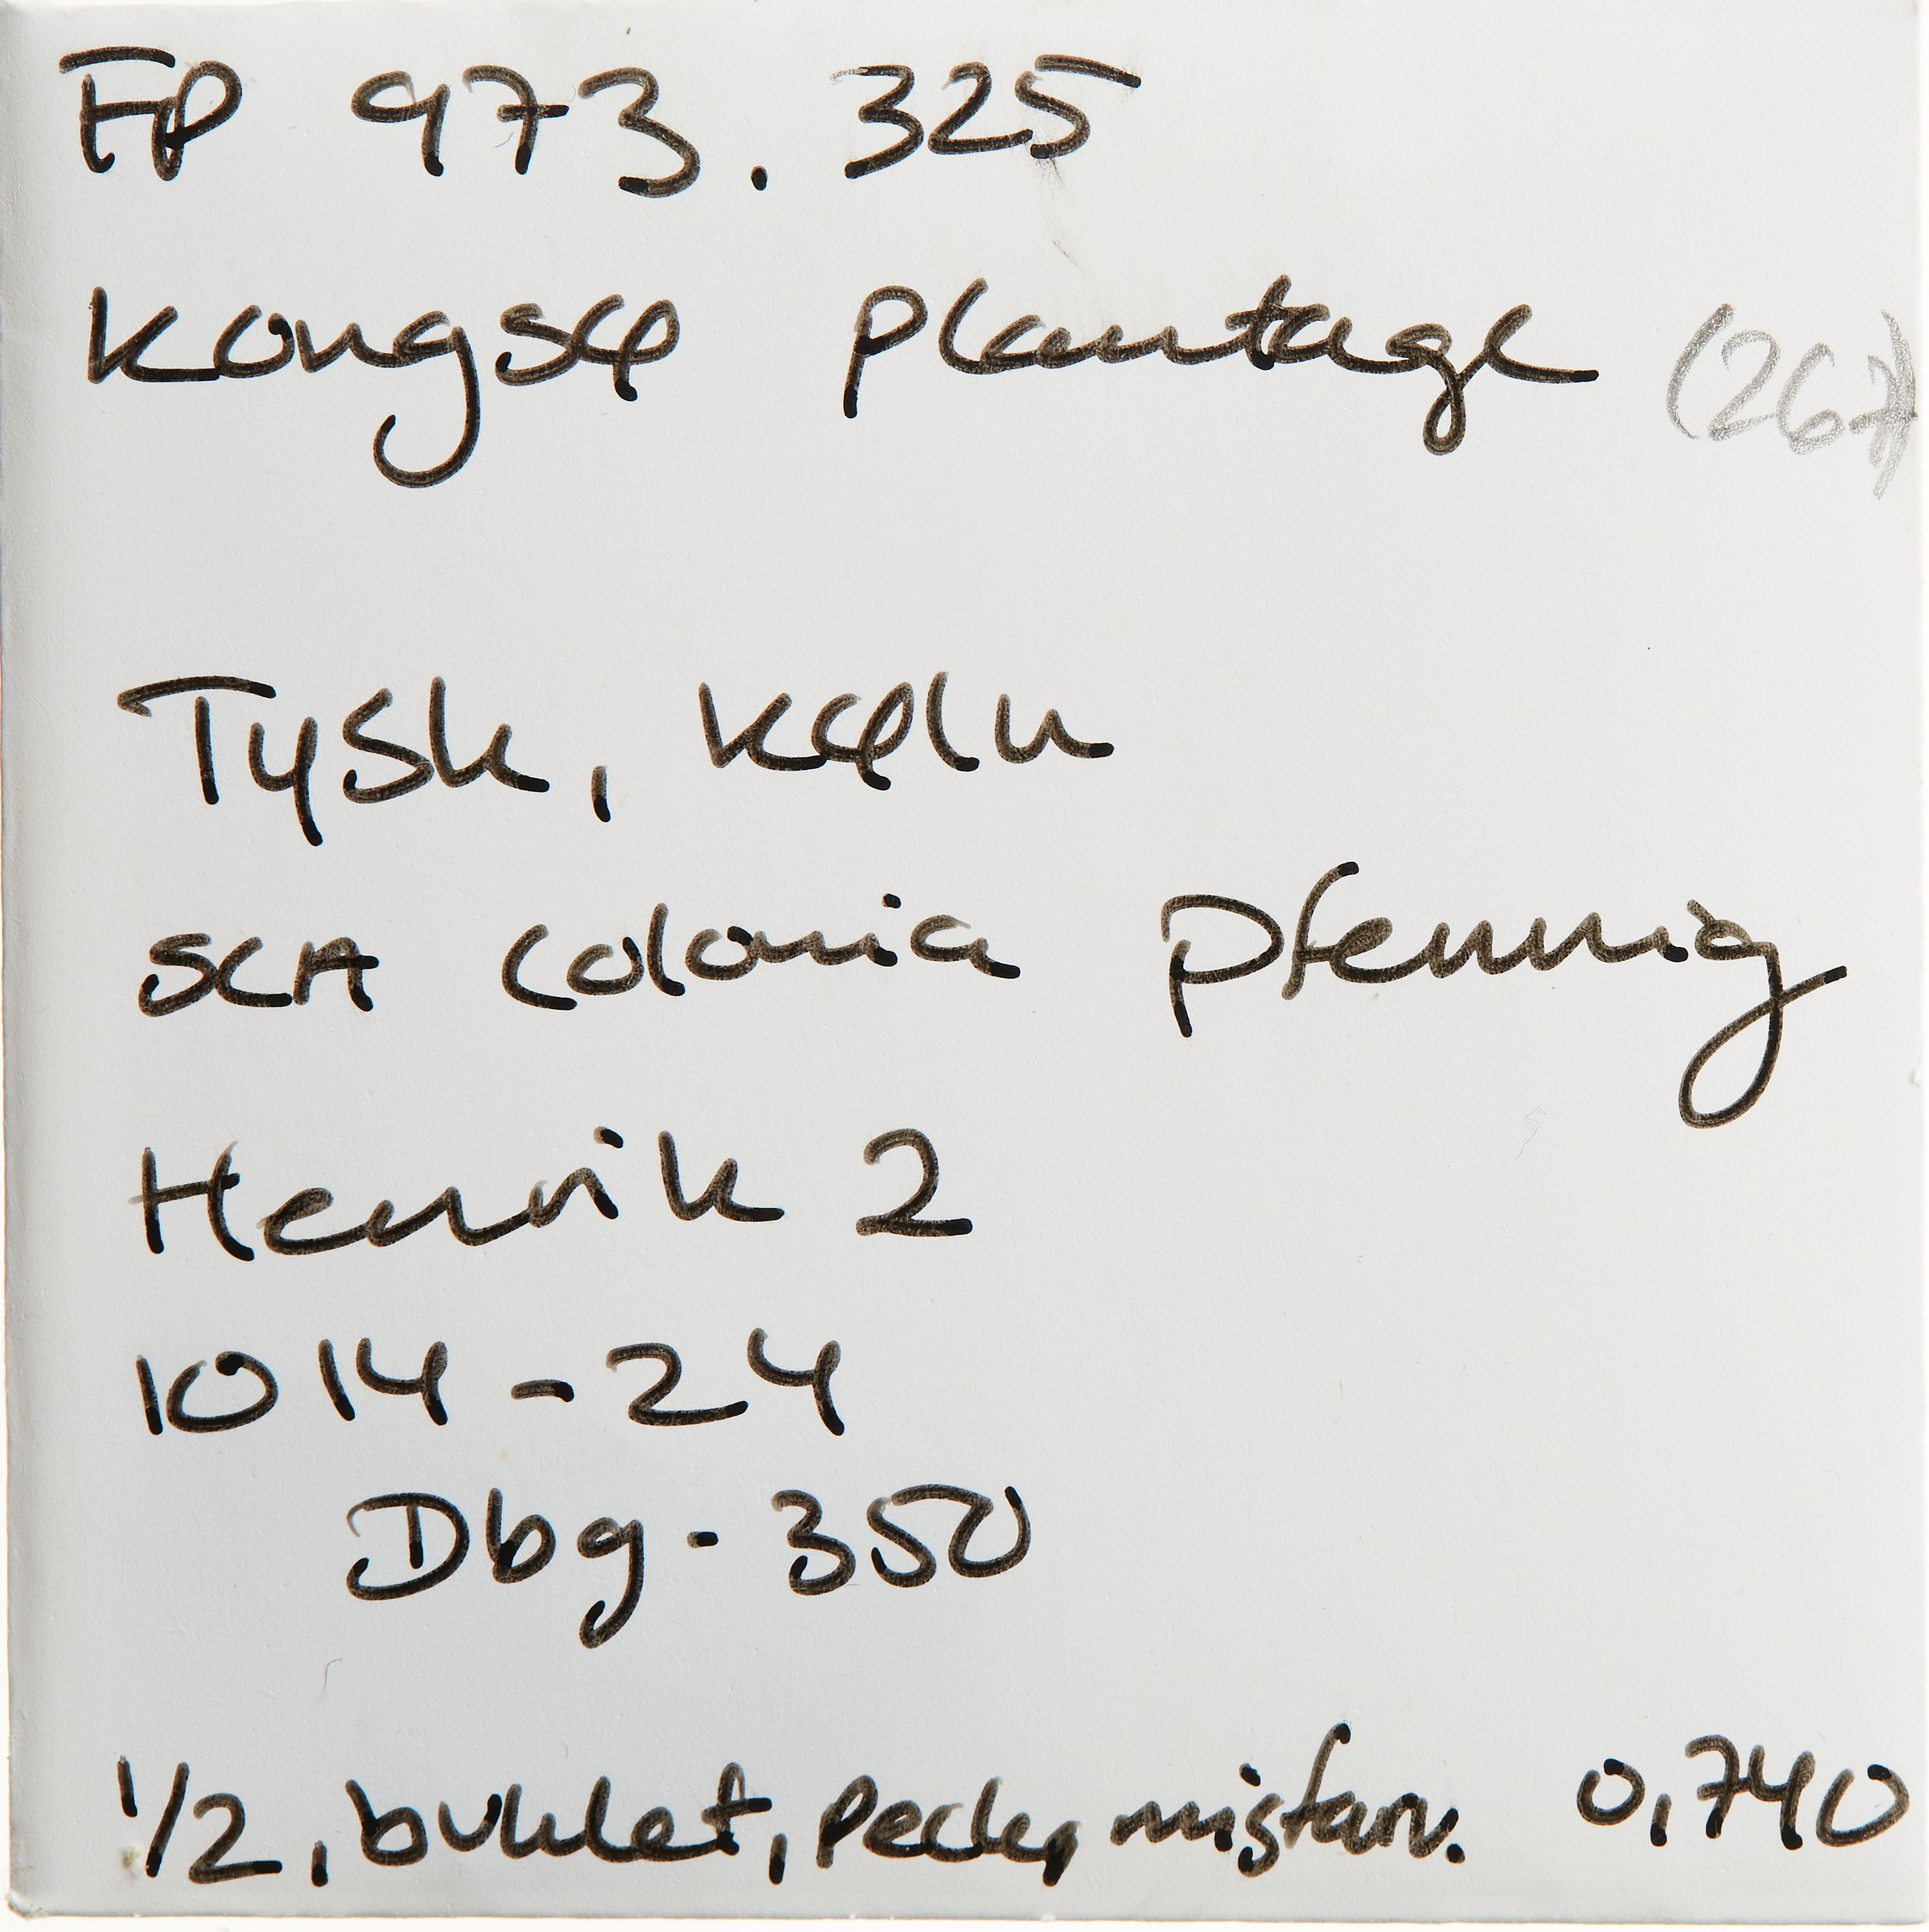 FP 973.325
Kongsø Plantage (267)
Tysk, Køln
SCA Colonia Pfennig
Henrik 2
1014-24
Dbg-350
1/2, buklet, peck, misfarv. 0,740